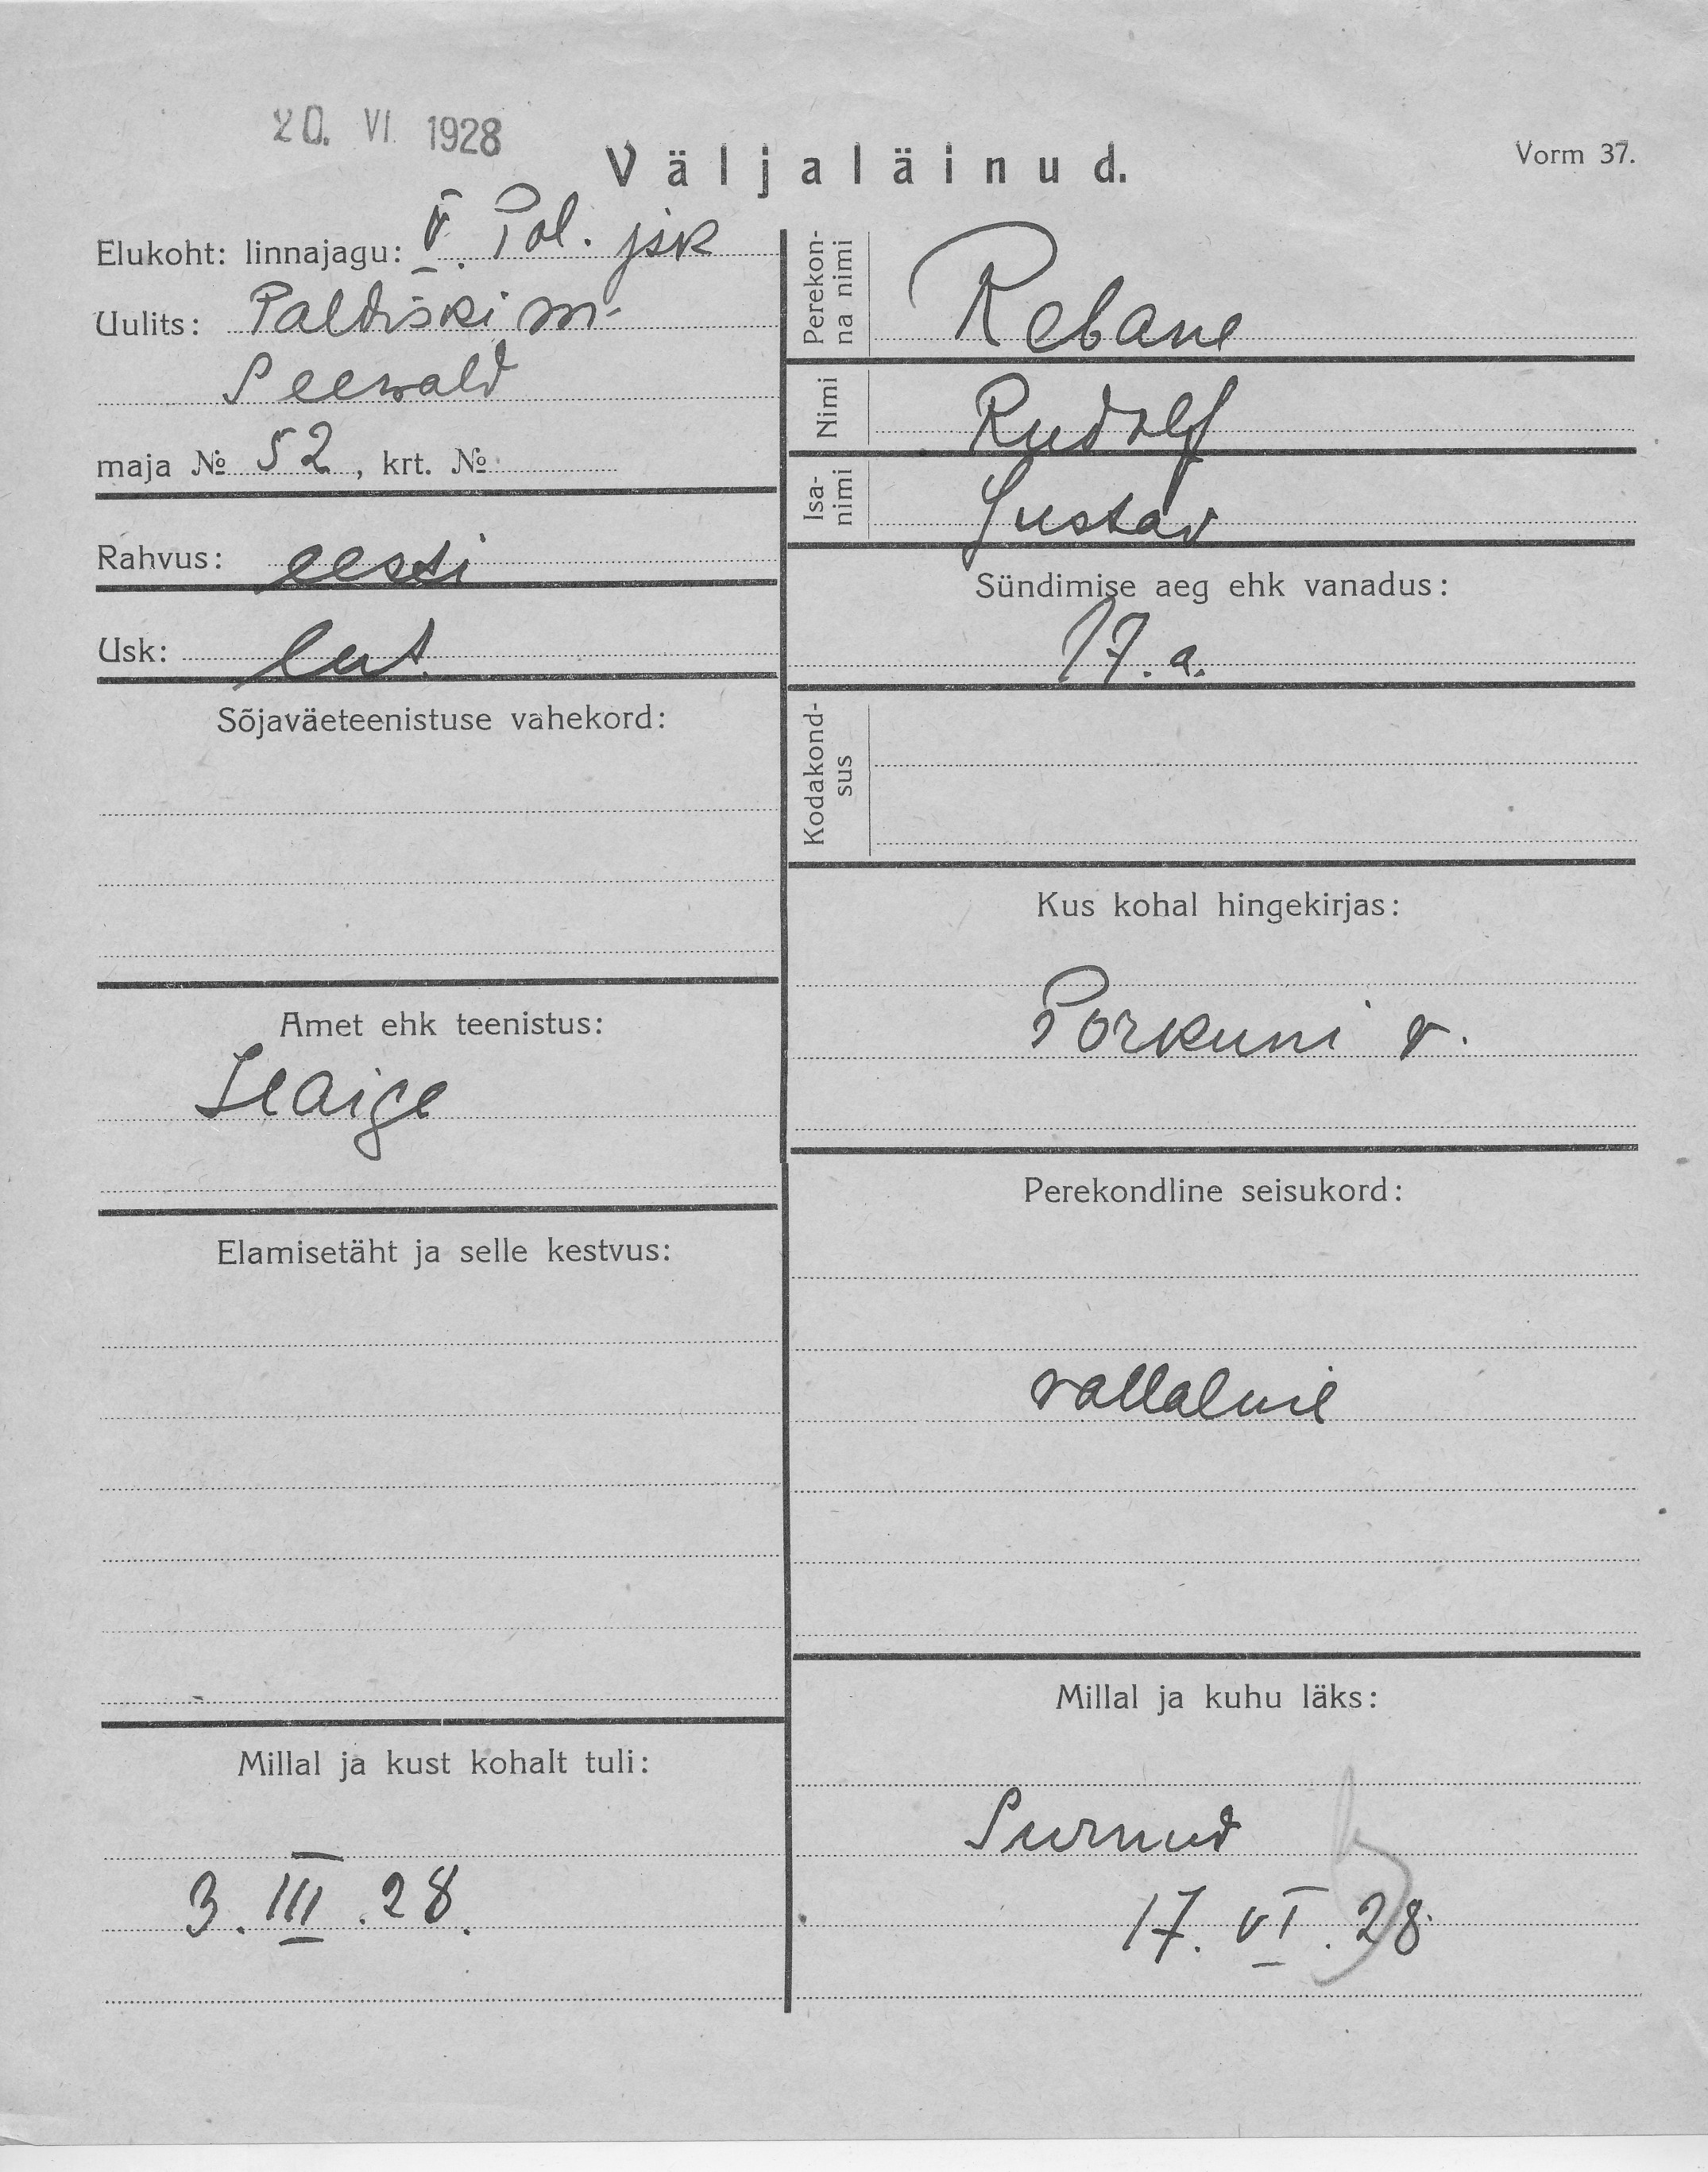 20. VI 1928
Väljaläinud.
Vorm 37.
Elukoht: linnajagu: V. Pol. jsk
Uulits: Paldiski m-
Seewald
maja № 52, krt. №
Rahvus: eesti
Usk: lut.
Sõjaväeteenistuse vahekord:
Amet ehk teenistus:
Haige
Elamisetäht ja selle kestvus:
Millal ja kust kohalt tuli:
3. III. 28.
Perekon-
na nimi
Rebane
Nimi
Rudolf
Isa-
nimi
Gustav
Sündimise aeg ehk vanadus:
17. a.
Kodakond-
sus
Kus kohal hingekirjas:
Porkuni v.
Perekondline seisukord:
vallaline
Millal ja kuhu läks:
Surnud
17. VI. 28